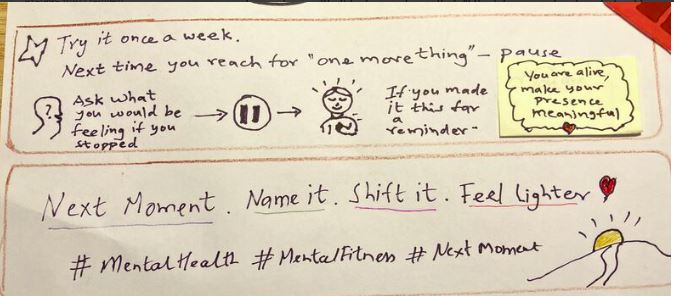 Try it once a week.
Next time you reach for "one more thing" - pause
Ask what
you would be
feeling if you
stopped
If you made
it this far
a
reminder-
You are alive,
make your
presence
meaningful
Next Moment. Name it. Shift it. Feel lighter
# Mental Health # Mental Fitness # Next Moment